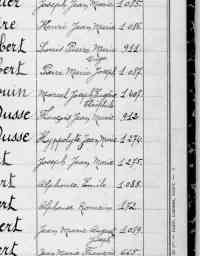 Joseph Jean Marie. 1085.
re Henri Jean Marie. 1086.
bert Louis Pierre Marie 911
bert Pierre Marie Joseph 1087.
ouin Marcel Joseph 1407.
Dusse François Jean Marie. 912
Dusse Hyppolyte Jean Marie 1274.
t Joseph Jean Marie 1275.
ert Alphonse Emile 1088.
ert Alphonse Romain 172.
ert Jean Marie August 1089.
Joseph
ert Jean Marie François 665.